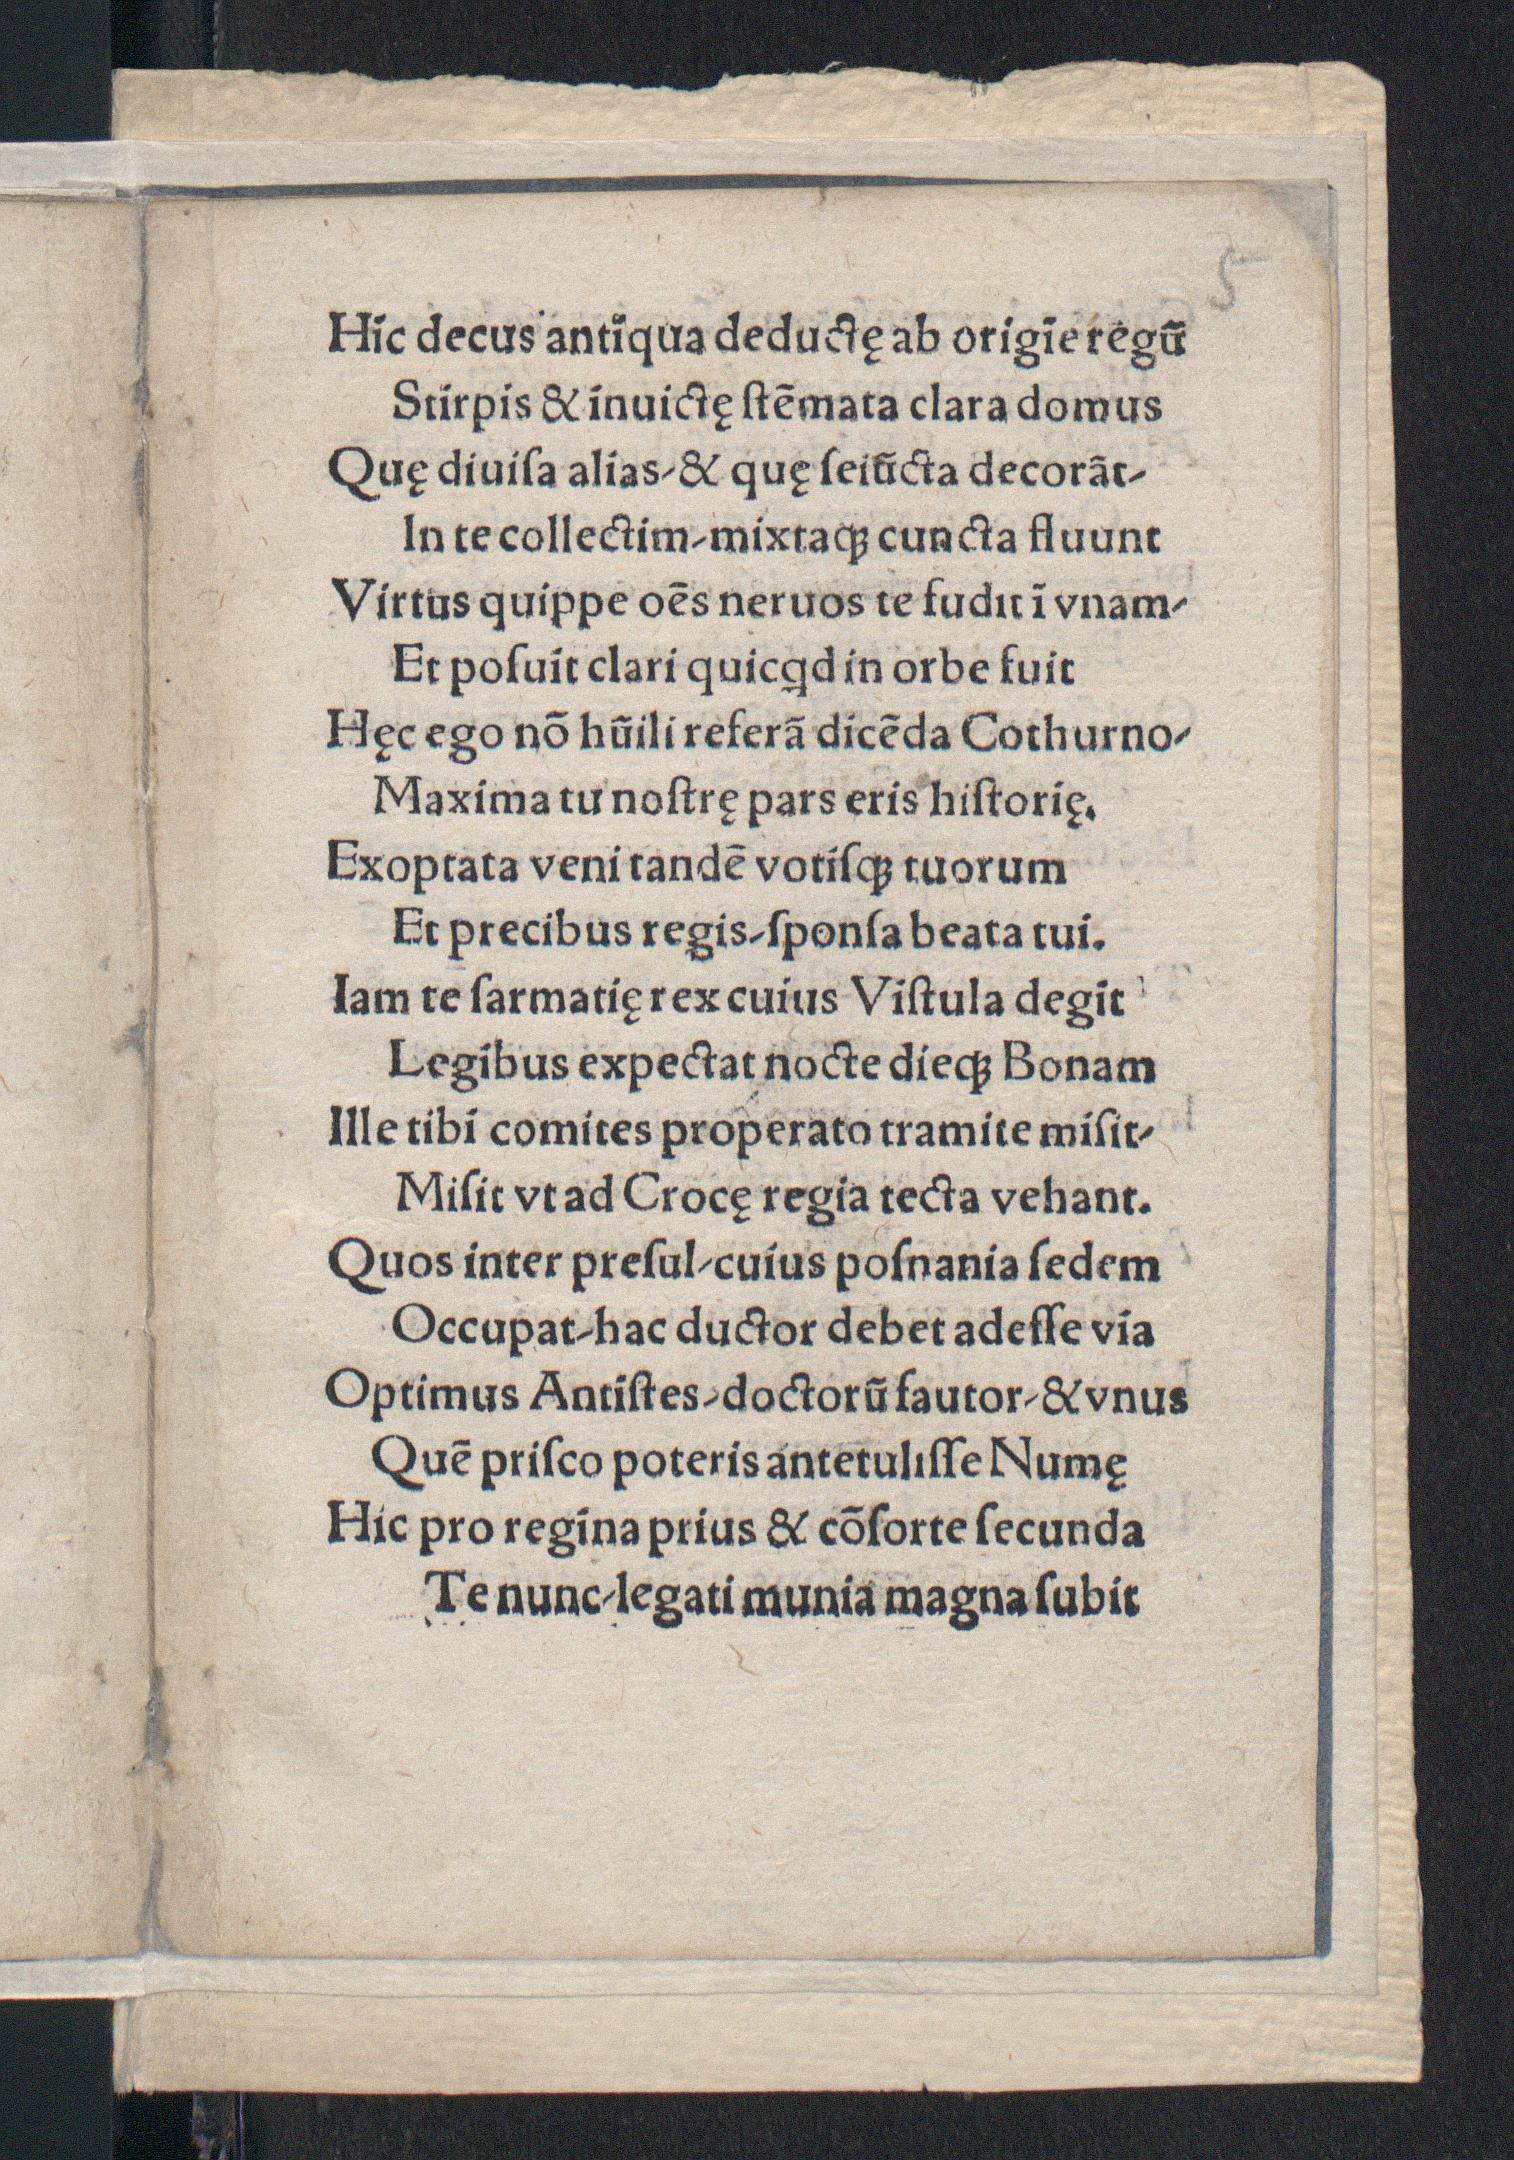 5
Hic decus antiqua deductę ab origie regū
Stirpis & inuictę ſtēmata clara domus
Quę diuiſa alias⸝& quę ſeiūcta decorāt⸝
In te collectim⸝mixtaqꝫ cuncta fluunt
Virtus quippe oēs neruos te fudit ī vnam⸝
Et poſuit clari quicqd in orbe fuit
Hęc ego nō hūili referā dicēda Cothurno⸝
Maxima tu noſtrę pars eris hiſtorię.
Exoptata veni tandē votiſqꝫ tuorum
Et precibus regis⸝ſponſa beata tui.
Iam te ſarmatię rex cuius Viſtula degit
Legibus expectat nocte dieqꝫ Bonam
Ille tibi comites properato tramite miſit⸝
Miſit vt ad Crocę regia tecta vehant.
Quos inter preſul⸝cuius poſnania ſedem
Occupat⸝hac ductor debet adeſſe via
Optimus Antiſtes⸝doctorū fautor⸝& vnus
Quē priſco poteris antetuliſſe Numę
Hic pro regina prius & cōſorte ſecunda
Te nunc⸝legati munia magna ſubit